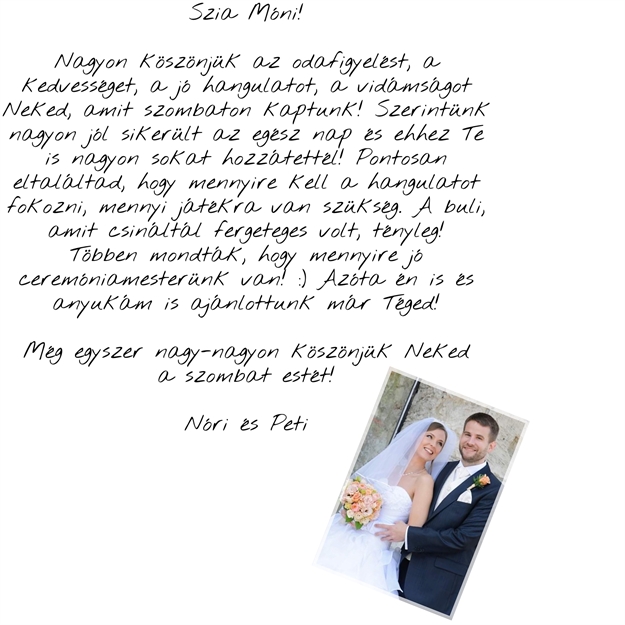 Szia Móni!
Nagyon köszönjük az odafigyelést, a
kedvességet, a jó hangulatot, a vidámságot
Neked, amit szombaton kaptunk! Szerintünk
nagyon jól sikerült az egész nap és ehhez Te
is nagyon sokat hozzátettél! Pontosan
eltaláltad, hogy mennyire kell a hangulatot
fokozni, mennyi játékra van szükség. A buli,
amit csináltál fergeteges volt, tényleg!
Többen mondták, hogy mennyire jó
ceremóniamesterünk van! :) Azóta én is és
anyukám is ajánlottunk már Téged!
Még egyszer nagy-nagyon köszönjük Neked
a szombat estét!
Nóri és Peti